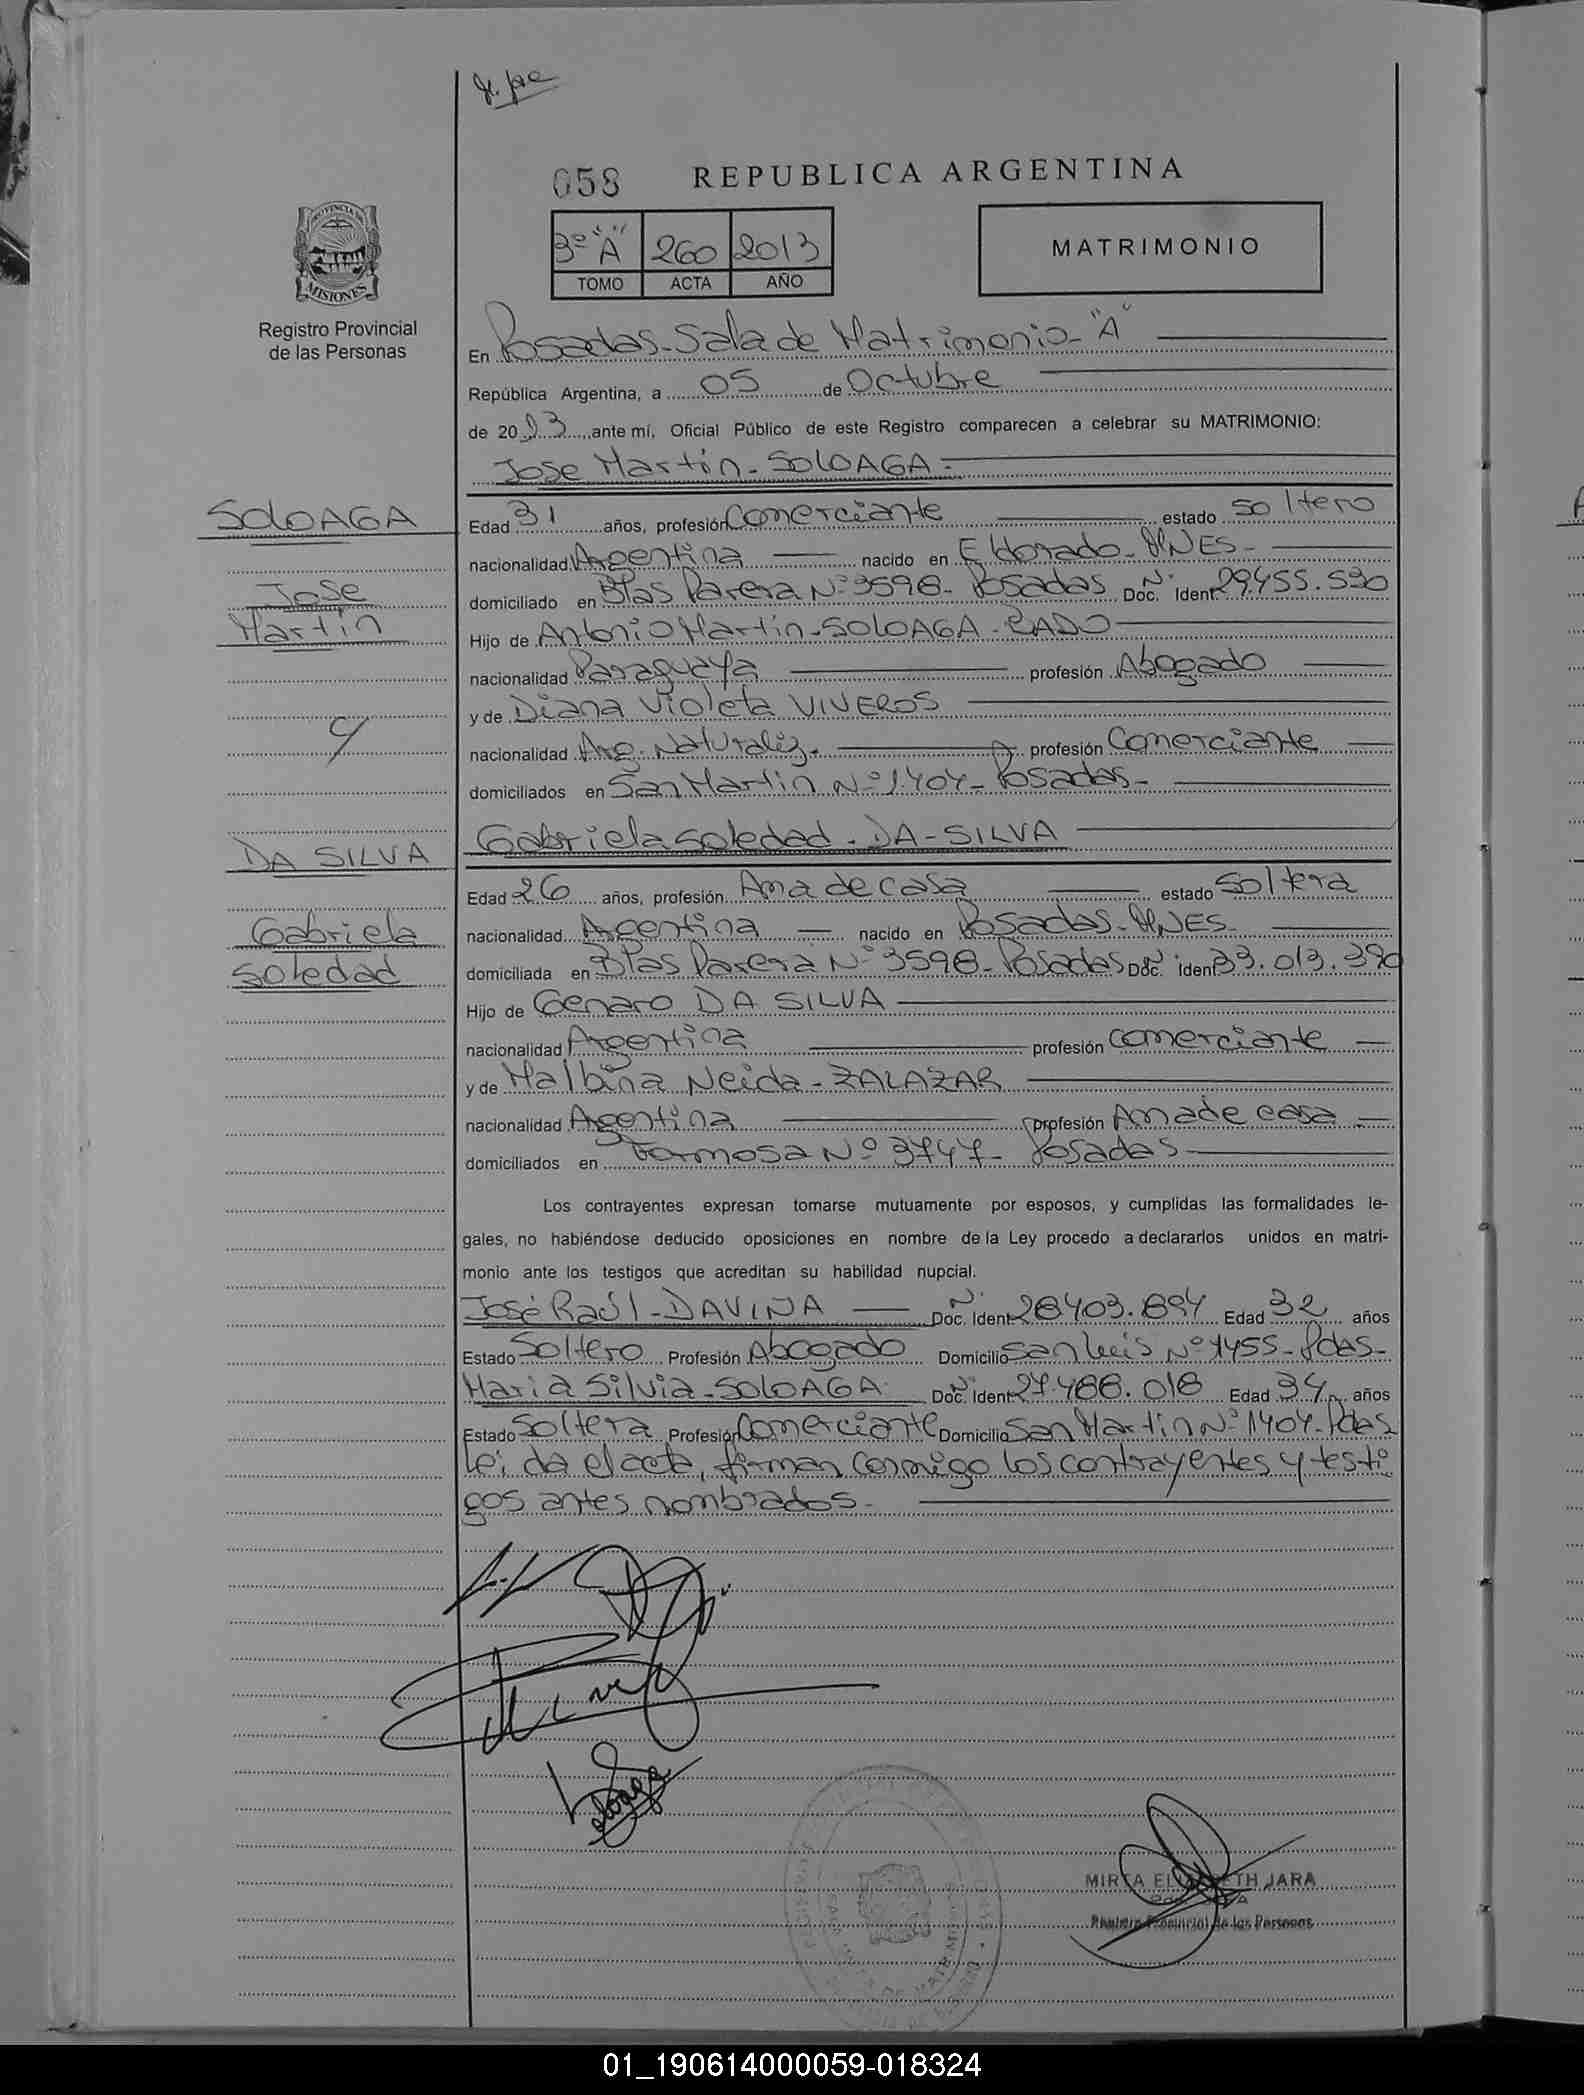 058 REPUBLICA ARGENTINA
PROVINCIA DE
MISIONES
Registro Provincial
de las Personas
3º "A" 260 2013
TOMO ACTA AÑO
MATRIMONIO
En Posadas-Sala de Matrimonio-"A"
República Argentina, a 05 de Octubre
de 2013, ante mí, Oficial Público de este Registro comparecen a celebrar su MATRIMONIO:
Jose Martin-SOLOAGA-
SOLOAGA
Jose
Martin
y
DA SILVA
Gabriela
Soledad
Edad 31 años, profesión Comerciante estado Soltero
nacionalidad Argentina nacido en Eldorado-MNES-
domiciliado en Blas Parera Nº 3598- Posadas Doc. Nº Ident 29.455.590
Hijo de Antonio Martin-SOLOAGA-
nacionalidad Paraguaya profesión Abogado
y de Diana Violeta VIVEROS
nacionalidad Arg. Naturaliz. profesión Comerciante
domiciliados en San Martin Nº 1.404- Posadas-
Gabriela Soledad-DA-SILVA
Edad 26 años, profesión Ama de casa estado Soltera
nacionalidad Argentina nacido en Posadas-MNES-
domiciliada en Blas Parera Nº 3598- Posadas Doc. Nº ident 33.013.390
Hijo de Genaro DA SILVA
nacionalidad Argentina profesión Comerciante
y de Malbina Neida-ZALAZAR
nacionalidad Argentina profesión Ama de casa
domiciliados en Formosa Nº 3747- Posadas
Los contrayentes expresan tomarse mutuamente por esposos, y cumplidas las formalidades le-
gales, no habiéndose deducido oposiciones en nombre de la Ley procedo a declararlos unidos en matri-
monio ante los testigos que acreditan su habilidad nupcial.
José Raúl-DAVIÑA Doc. Nº Ident 28403.894 Edad 32 años
Estado Soltero Profesión Abogado Domicilio San Luis Nº 1455-Pdas-
Maria Silvia-SOLOAGA Doc. Nº Ident 27.488.018 Edad 34 años
Estado Soltera Profesión Comerciante Domicilio San Martin Nº 1404-Pdas
Leída el acta, firman conmigo los contrayentes y testi
gos antes nombrados-
MIRTA ELIZABETH JARA
Registro Provincial de las Personas
01_190614000059-018324